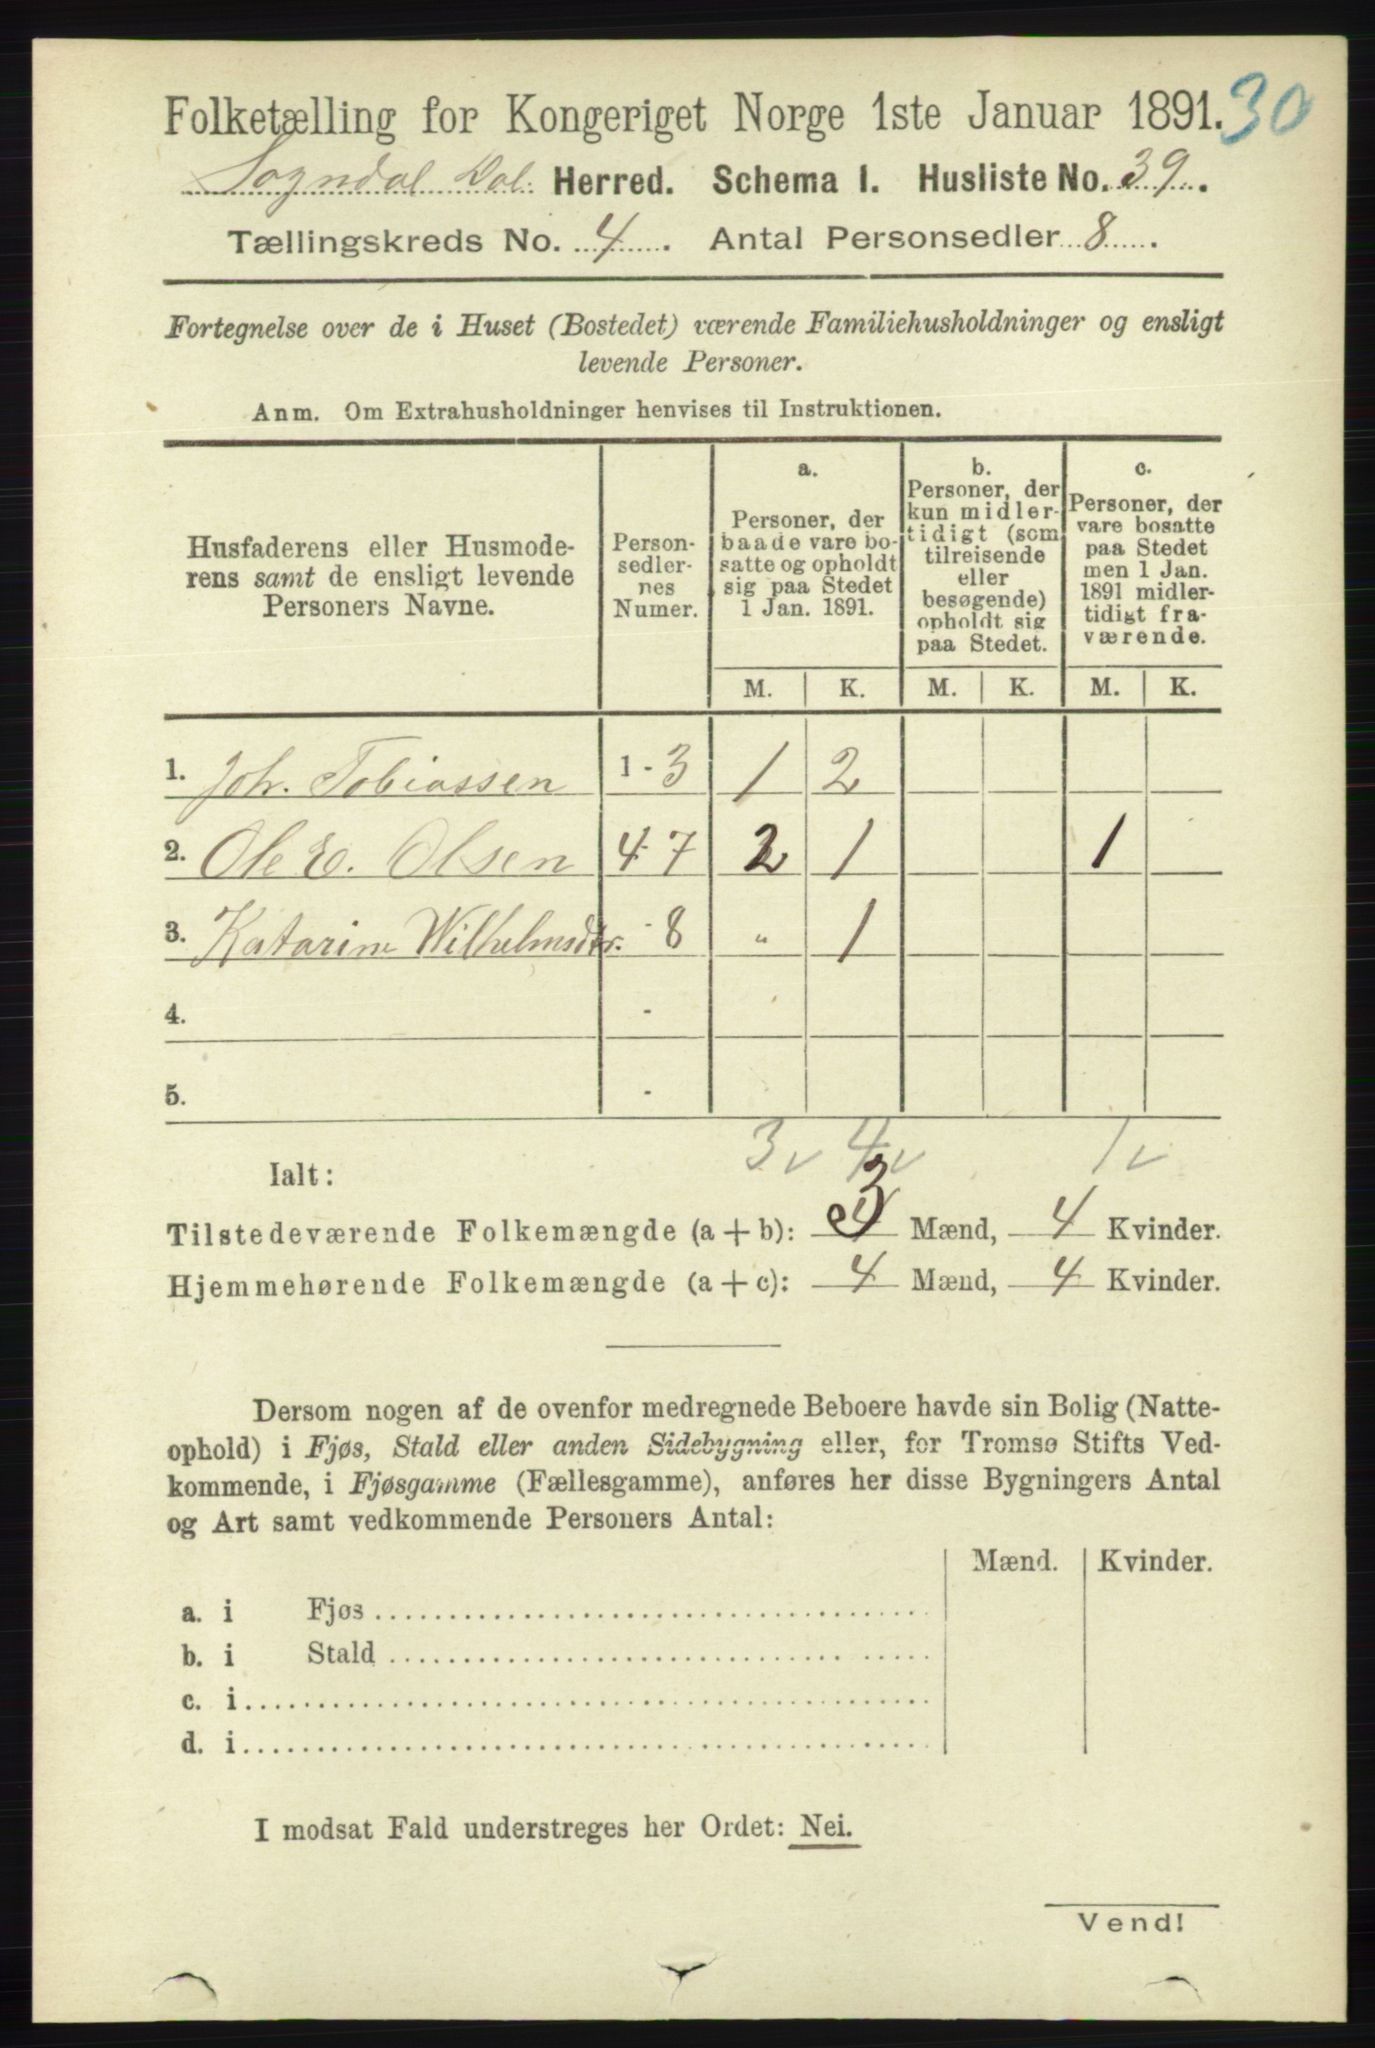 Folketælling for Kongeriget Norge 1ste Januar 1891. 30
Sogndal Herred. Schema I. Husliste No. 39.
Tællingskreds No. 4. Antal Personsedler 8.
Fortegnelse over de i Huset (Bostedet) værende Familiehusholdninger og ensligt
levende Personer.
Anm. Om Extrahusholdninger henvises til Instruktionen.
Husfaderens eller Husmode-
rens samt de ensligt levende
Personers Navne.
Person-
sedler-
nes
Numer.
a.
Personer, der
baade vare bo-
satte og opholdt
sig paa Stedet
1 Jan. 1891.
b.
Personer, der
kun midler-
tidigt (som
tilreisende
eller
besøgende)
opholdt sig
paa Stedet.
c.
Personer, der
vare bosatte
paa Stedet
men 1 Jan.
1891 midler-
tidigt fra-
værende.
M. K. M. K. M. K.
1. Joh. Tobiassen 1-3 1 2
2. Ole E. Olsen 4-7 2 1 1
3. Katarine Wilhelmsdtr. - 8 „ 1
4. -
5. -
3 v 4 v 1 v
Ialt:
Tilstedeværende Folkemængde (a + b): 3 Mænd, 4 Kvinder.
Hjemmehørende Folkemængde (a + c): 4 Mænd, 4 Kvinder.
Dersom nogen af de ovenfor medregnede Beboere havde sin Bolig (Natte-
ophold) i Fjøs, Stald eller anden Sidebygning eller, for Tromsø Stifts Ved-
kommende, i Fjøsgamme (Fællesgamme), anføres her disse Bygningers Antal
og Art samt vedkommende Personers Antal:
Mænd. Kvinder.
a. i Fjøs
b. i Stald
c. i
d. i
I modsat Fald understreges her Ordet: Nei.
Vend!